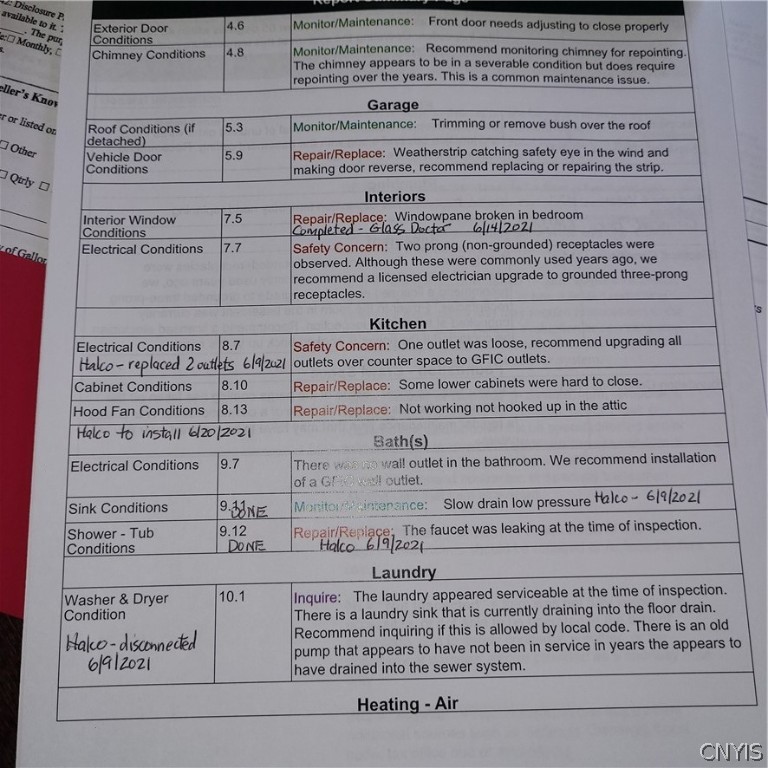 Disclosure P
available to it.
The pur
Monthly,
eller's Know
r or listed on
Other
Qtrly
y of Gallo
Report Summary Page
Exterior Door Conditions 4.6 Monitor/Maintenance: Front door needs adjusting to close properly
Chimney Conditions 4.8 Monitor/Maintenance: Recommend monitoring chimney for repointing.
The chimney appears to be in a severable condition but does require
repointing over the years. This is a common maintenance issue.
Garage
Roof Conditions (if detached) 5.3 Monitor/Maintenance: Trimming or remove bush over the roof
Vehicle Door Conditions 5.9 Repair/Replace: Weatherstrip catching safety eye in the wind and
making door reverse, recommend replacing or repairing the strip.
Interiors
Interior Window Conditions 7.5 Repair/Replace: Windowpane broken in bedroom
Completed - Glass Doctor 6/14/2021
Electrical Conditions 7.7 Safety Concern: Two prong (non-grounded) receptacles were
observed. Although these were commonly used years ago, we
recommend a licensed electrician upgrade to grounded three-prong
receptacles.
Kitchen
Electrical Conditions 8.7 Safety Concern: One outlet was loose, recommend upgrading all
outlets over counter space to GFIC outlets.
Halco - replaced 2 outlets 6/9/2021
Cabinet Conditions 8.10 Repair/Replace: Some lower cabinets were hard to close.
Hood Fan Conditions 8.13 Repair/Replace: Not working not hooked up in the attic
Halco to install 6/20/2021
Bath(s)
Electrical Conditions 9.7 There was no wall outlet in the bathroom. We recommend installation
of a GFIC wall outlet.
Sink Conditions 9.11 DONE Monitor/Maintenance: Slow drain low pressure Halco - 6/9/2021
Shower - Tub Conditions 9.12 DONE Repair/Replace: The faucet was leaking at the time of inspection.
Halco 6/9/2021
Laundry
Washer & Dryer Condition 10.1 Inquire: The laundry appeared serviceable at the time of inspection.
There is a laundry sink that is currently draining into the floor drain.
Recommend inquiring if this is allowed by local code. There is an old
pump that appears to have not been in service in years the appears to
have drained into the sewer system.
Halco - disconnected
6/9/2021
Heating - Air
CNYIS